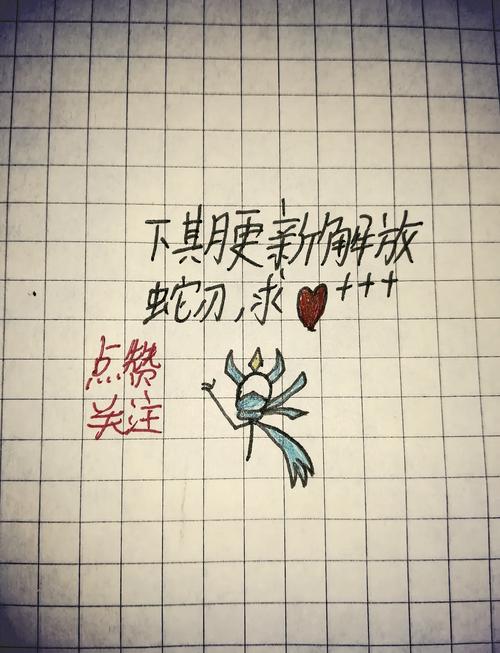 下期更新解放
蛇刃,求❤+++
点赞
关注